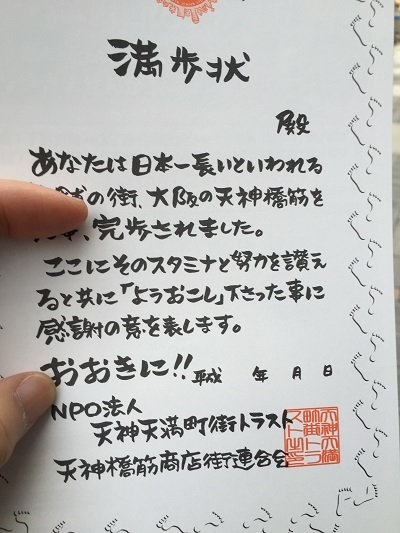 満歩状
殿
あなたは日本一長いといわれる
の街、大阪の天神橋筋を
、完歩されました。
ここにそのスタミナと努力を讃え
ると共に「ようおこし」下さった事に
感謝の意を表します。
おおきに!! 平成 年 月 日
NPO法人
天神天満町街トラスト
天神橋筋商店街連合会